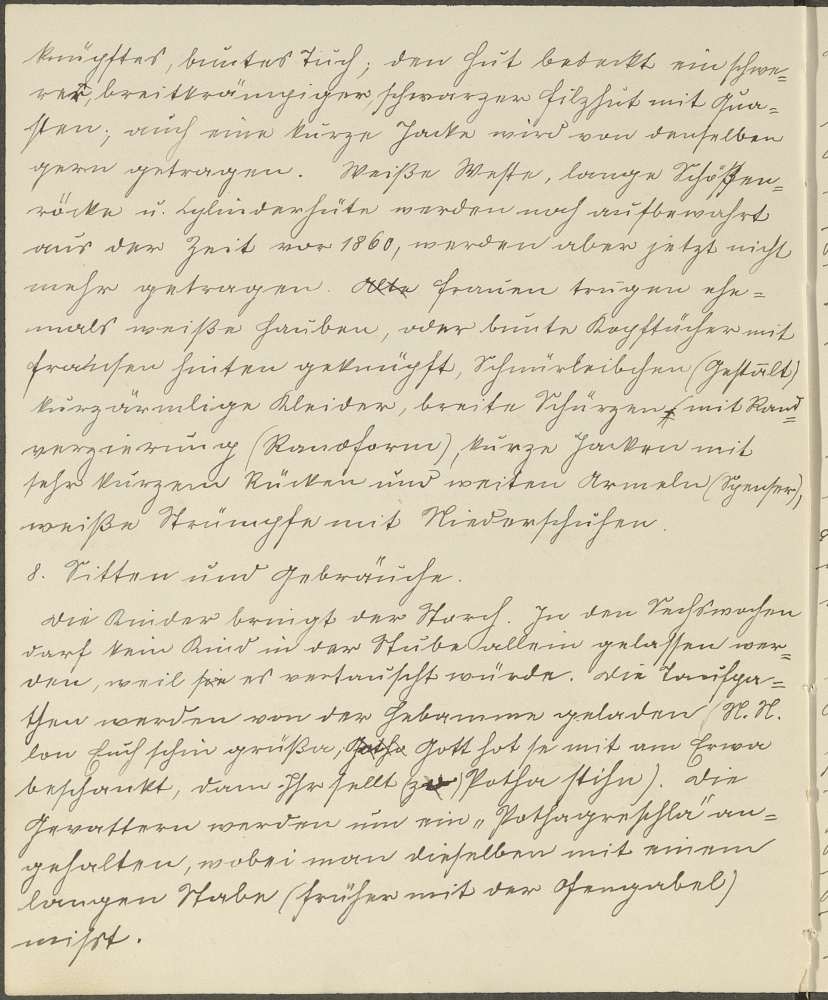 knüpftes, buntes Tuch; den Hut bedeckt ein schwe-
rer, breitkrämpiger, schwarzer Filzhut mit Qua-
sten; auch eine kurze Jacke wird von denselben
gern getragen. Weiße Weste, lange Schößen-
röcke u. Cylinderhüte werden noch aufbewahrt
aus der Zeit vor 1860, werden aber jetzt nicht
mehr getragen. Alte Frauen trugen ehe-
mals weiße Hauben, oder bunte Kopftücher mit
Fransen hinten geknüpft, Schnürleibchen (Gestált)
kurzärmlige Kleider, breite Schürzen (mit Rand-
verzierung (Randform), kurze Jacken mit
sehr kurzem Rücken und weiten Armeln (Spenser),
weiße Strümpfe mit Niederschuhen.
8. Sitten und Gebräuche.
Die Kinder bringt der Storch. In den Sechswochen
darf kein Kind in der Stube allein gelassen wer-
den, weil sie es vertauscht würde. Die Taufpa-
then werden von der Hebamme geladen (N. N.
lon Euch schin grüßa, Gott hot se mit am Erwa
beschankt, dam Ihr sellt (zu) Potha stihn). Die
Gevattern werden um ein „Pothagreschla" an-
gehalten, wobei man dieselben mit einem
langen Stabe (früher mit der Ofengabel)
misst.